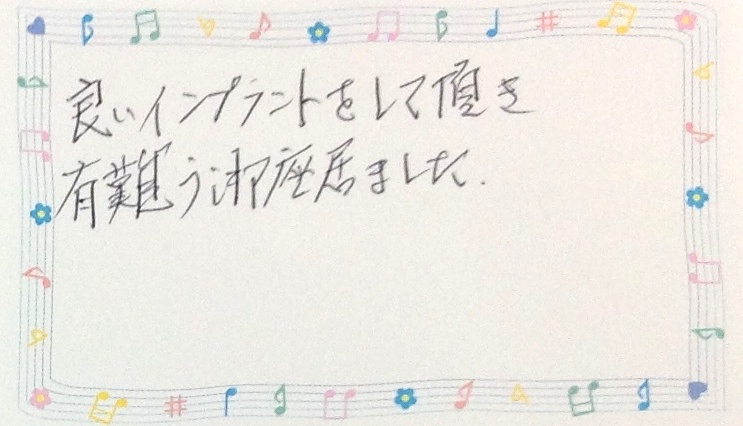 良いインプラントをして頂き
有難う御座居ました.